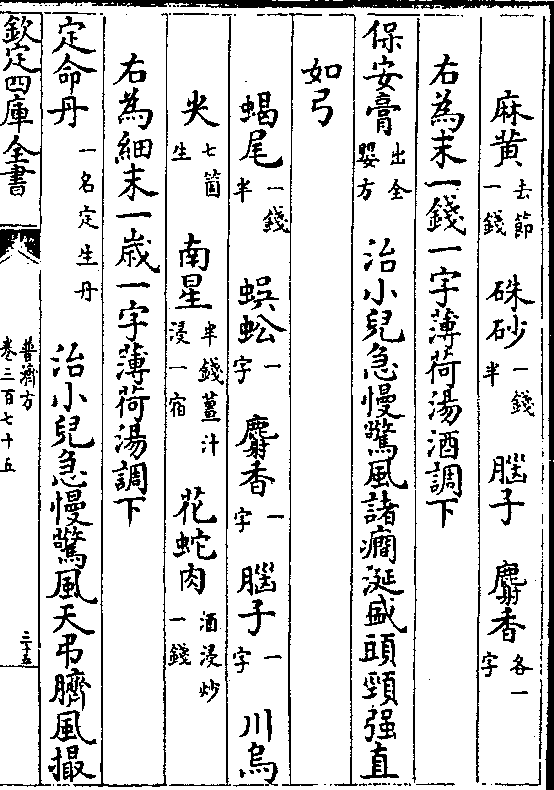 麻黄去節一錢　硃砂一錢半　腦子　麝香各一字
右為末一錢一字薄荷湯酒調下
保安膏出全嬰方　治小兒急慢驚風諸癎涎盛頭頸强直
如弓
蝎尾一錢半　蜈蚣一字　麝香一字　腦子一字　川烏
尖七箇生　南星半錢薑汁浸一宿　花蛇肉酒浸炒一錢
右為細末一歳一字薄荷湯調下
定命丹一名定生丹　治小兒急慢驚風天弔臍風撮
欽定四庫全書
普濟方
卷三百七十五
三十五